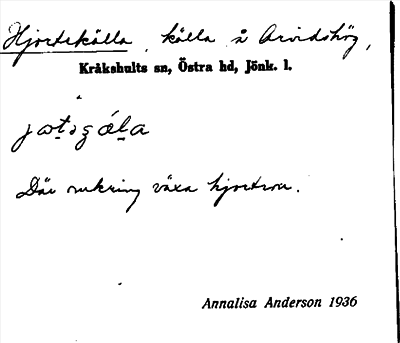 Hjortekälla, källa å Arvidshög,
Kråkshults sn, Östra hd, Jönk. l.
Där omkring växa hjortron.
Annalisa Anderson 1936